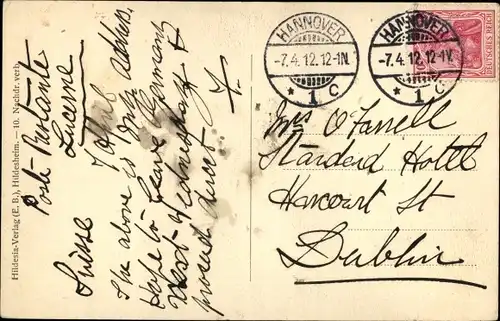 Hildesia-Verlag (E. B.), Hildesheim. — 10. Nachdr. verb.
Poste Restante
Lucerne
Suisse
The above is my
Hope to leave Germany
next Wednesday &
proceed direct
HANNOVER
-7.4.12.12-1N.
* 1 C
HANNOVER
-7.4.12.12-1V.
* 1 C
DEUTSCHES REICH
Mrs O'Farrell
Standard Hotel
Harcourt St
Dublin